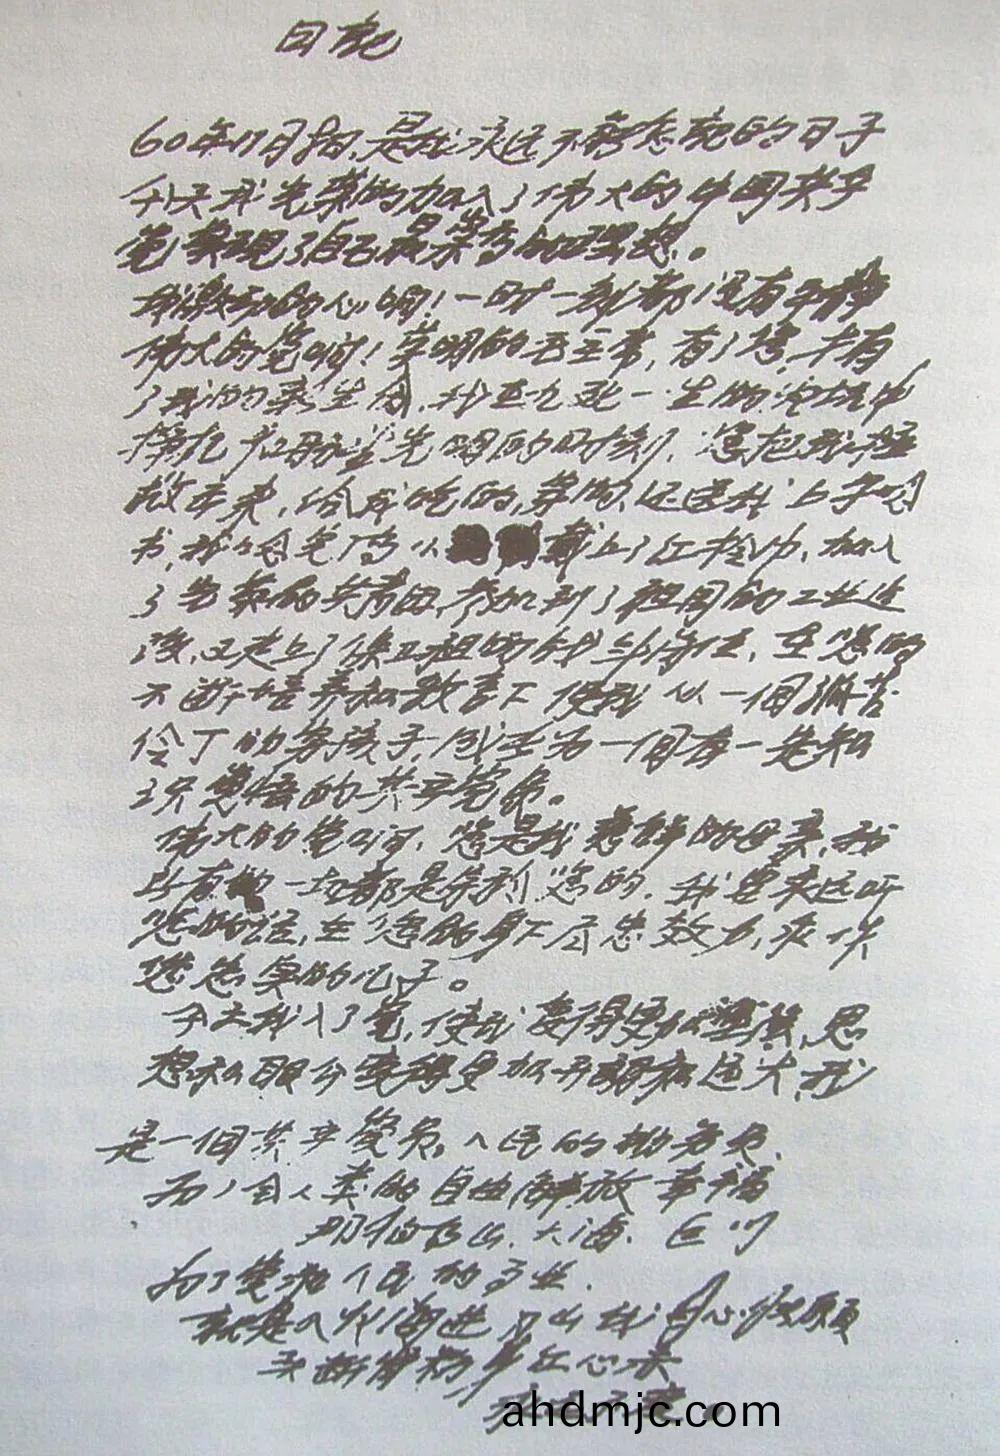 日记
60年11月8日,是我永远不能忘记的日子
今天我光荣的加入了伟大的中国共产
党,实现了自己最崇高的理想。
我激动的心啊!一时一刻都没有平静
伟大的党啊!英明的毛主席,有了您,才有
了我的新生命,我在九死一生的火坑中
挣扎和盼望光明的时刻,您把我拯
救出来,给我吃的,穿的,还送我上学念
书,我念完了高小 戴上了红领巾,加入
了光荣的共青团,参加到了祖国的工业建
设,又走上了保卫祖国的战斗岗位,在您的
不断培养和教育下,使我从一个孤苦
伶丁的穷孩子,成长为一个有一定知
识觉悟的共产党员。
伟大的党啊,您是我慈祥的母亲,我
所有的一切都是属于您的,我要永远听
您的话,在您的身下尽忠效力,永作
您忠实的儿子。
今天我入了党,使我变得更加坚强,思
想和眼介变得更加开朗和远大,我
是一个共产党员,人民的勤务员,
为了全人类的自由解放幸福
那怕高山,大海,巨川
为了党和人民的事业,
就是入火海进刀山我甘心情愿
头断骨粉,身红心赤